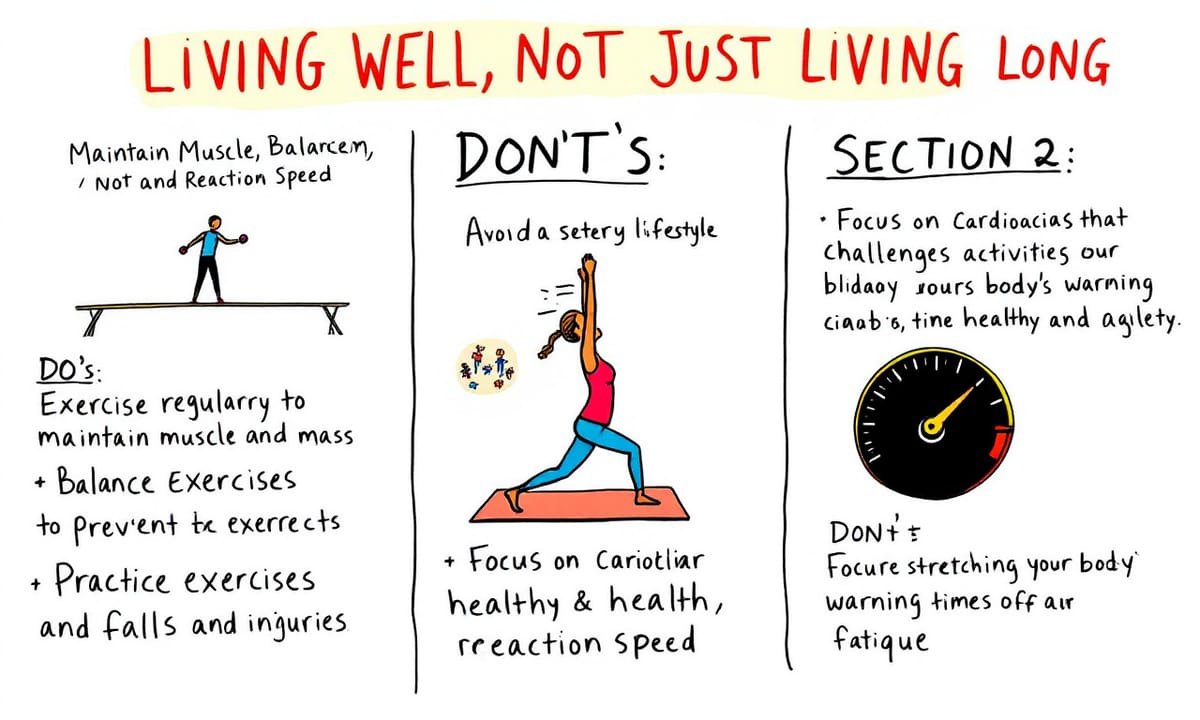 LIVING WELL, NOT JUST LIVING LONG
Maintain Muscle, Balarcem,
Not and Reaction Speed
DO's:
Exercise regularry to
maintain muscle and mass
+ Balance Exercises
to prevent te exerrects
+ Practice exercises
and falls and injuries
DON'T'S:
Avoid a setery lifestyle
+ Focus on Cariotliar
healthy & health,
rreaction speed
SECTION 2:
· Focus on Cardioacias that
challenges activities our
blidaoy yours body's warming
tine healthy and agilety.
DON't
Focure stretching your body
warning times off air
fatique